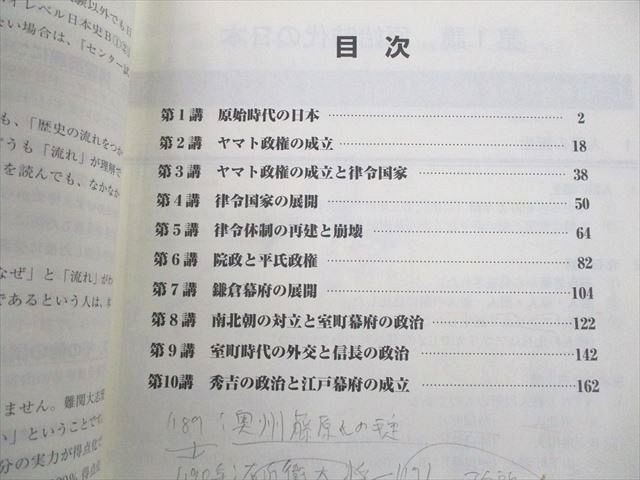 験以外でも日
イレベル日本史B①②
ない場合は、「センター試
も、「歴史の流れをつか
うも「流れ」が理解で
を読んでも、なかなか
なぜ」と「流れ」がわ
であるという人は、本
ません。難関大志望
い」ということです。
分の実力が得点化で
目 次
第1講 原始時代の日本 2
第2講 ヤマト政権の成立 18
第3講 ヤマト政権の成立と律令国家 38
第4講 律令国家の展開 50
第5講 律令体制の再建と崩壊 64
第6講 院政と平氏政権 82
第7講 鎌倉幕府の展開 104
第8講 南北朝の対立と室町幕府の政治 122
第9講 室町時代の外交と信長の政治 142
第10講 秀吉の政治と江戸幕府の成立 162
1189:奥州藤原氏の